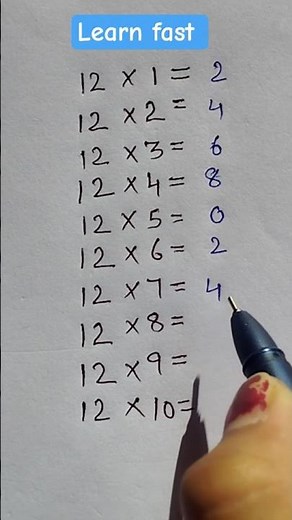 Learn fast
12 × 1 = 2
12 × 2 = 4
12 × 3 = 6
12 × 4 = 8
12 × 5 = 0
12 × 6 = 2
12 × 7 = 4
12 × 8 =
12 × 9 =
12 × 10 =